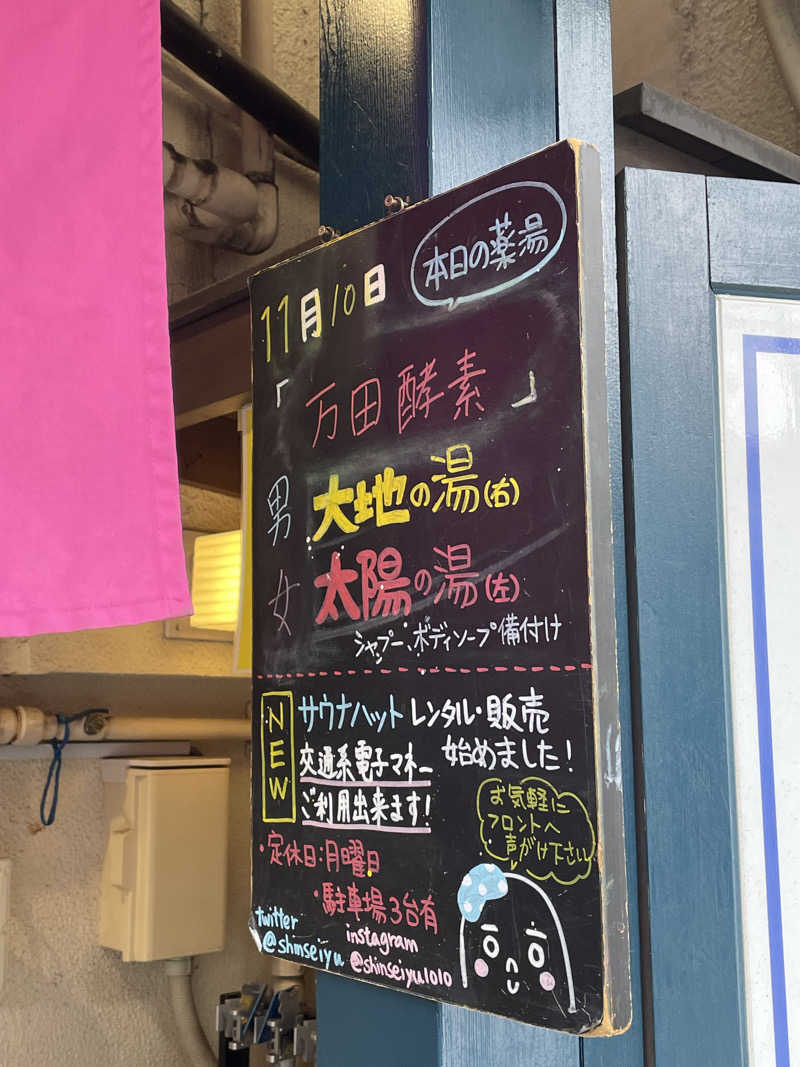 本日の薬湯
11月10日
「万田酵素」
男 大地の湯(右)
女 太陽の湯(左)
シャンプー、ボディソープ備付け
NEW
サウナハットレンタル・販売
始めました!
交通系電子マネー
ご利用出来ます!
お気軽に
フロントへ
声がけ下さい
・定休日:月曜日
・駐車場3台有
twitter
@shinseiyu
instagram
@shinseiyu1010